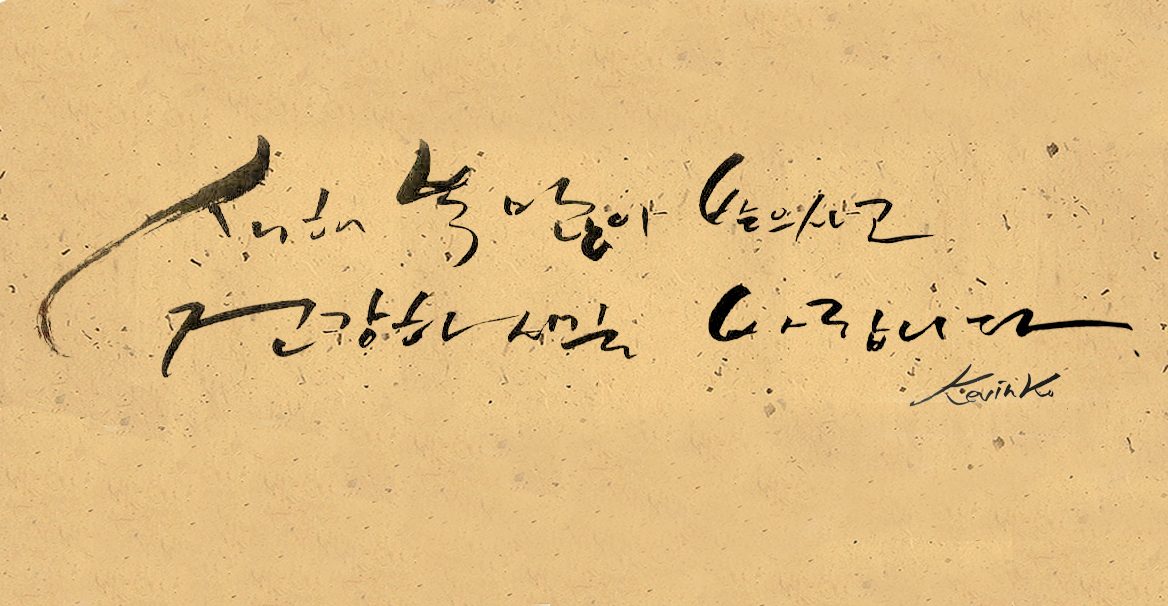 새해 복 많이 받으시고
건강하시길 바랍니다
Kevin Ko